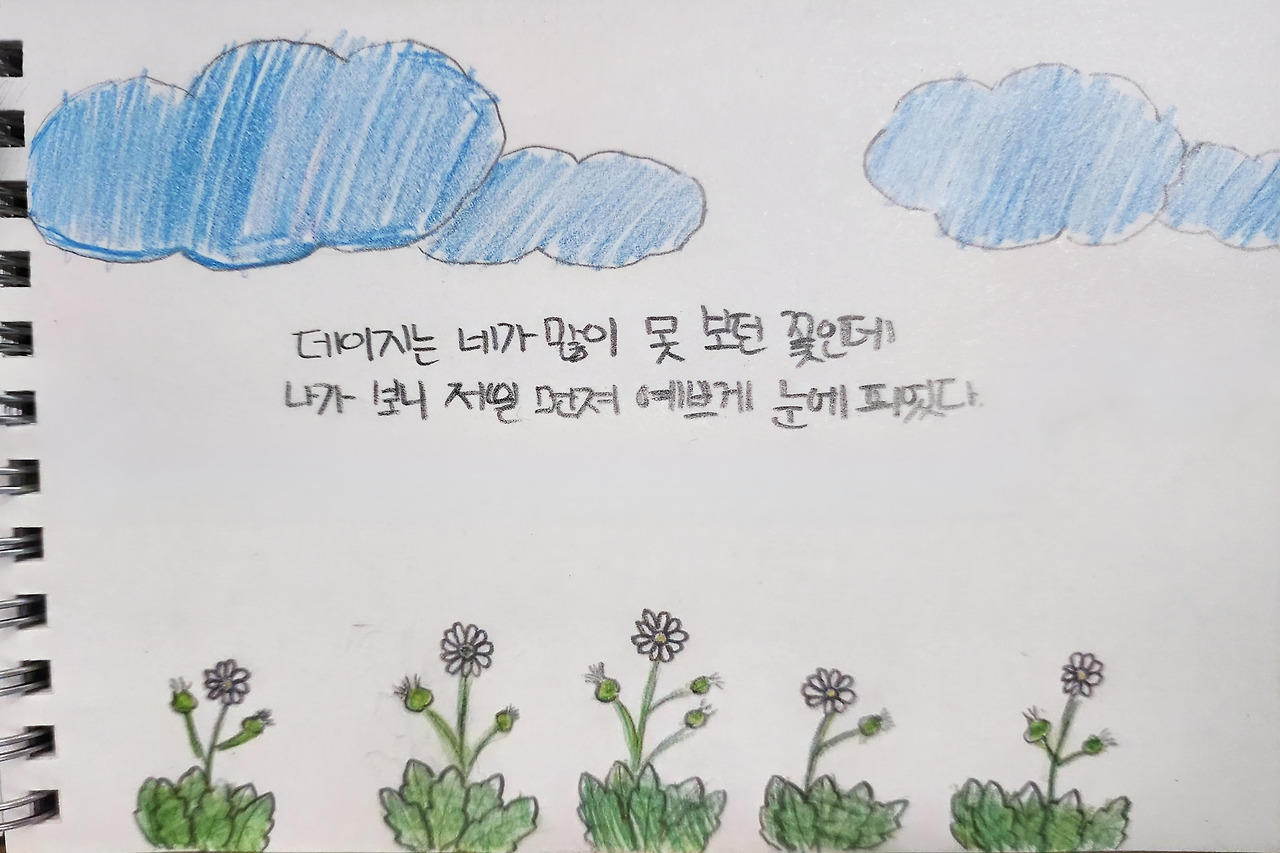 데이지는 네가 많이 못 보던 꽃인데
나가 보니 제일 먼저 예쁘게 눈에 피웠다.